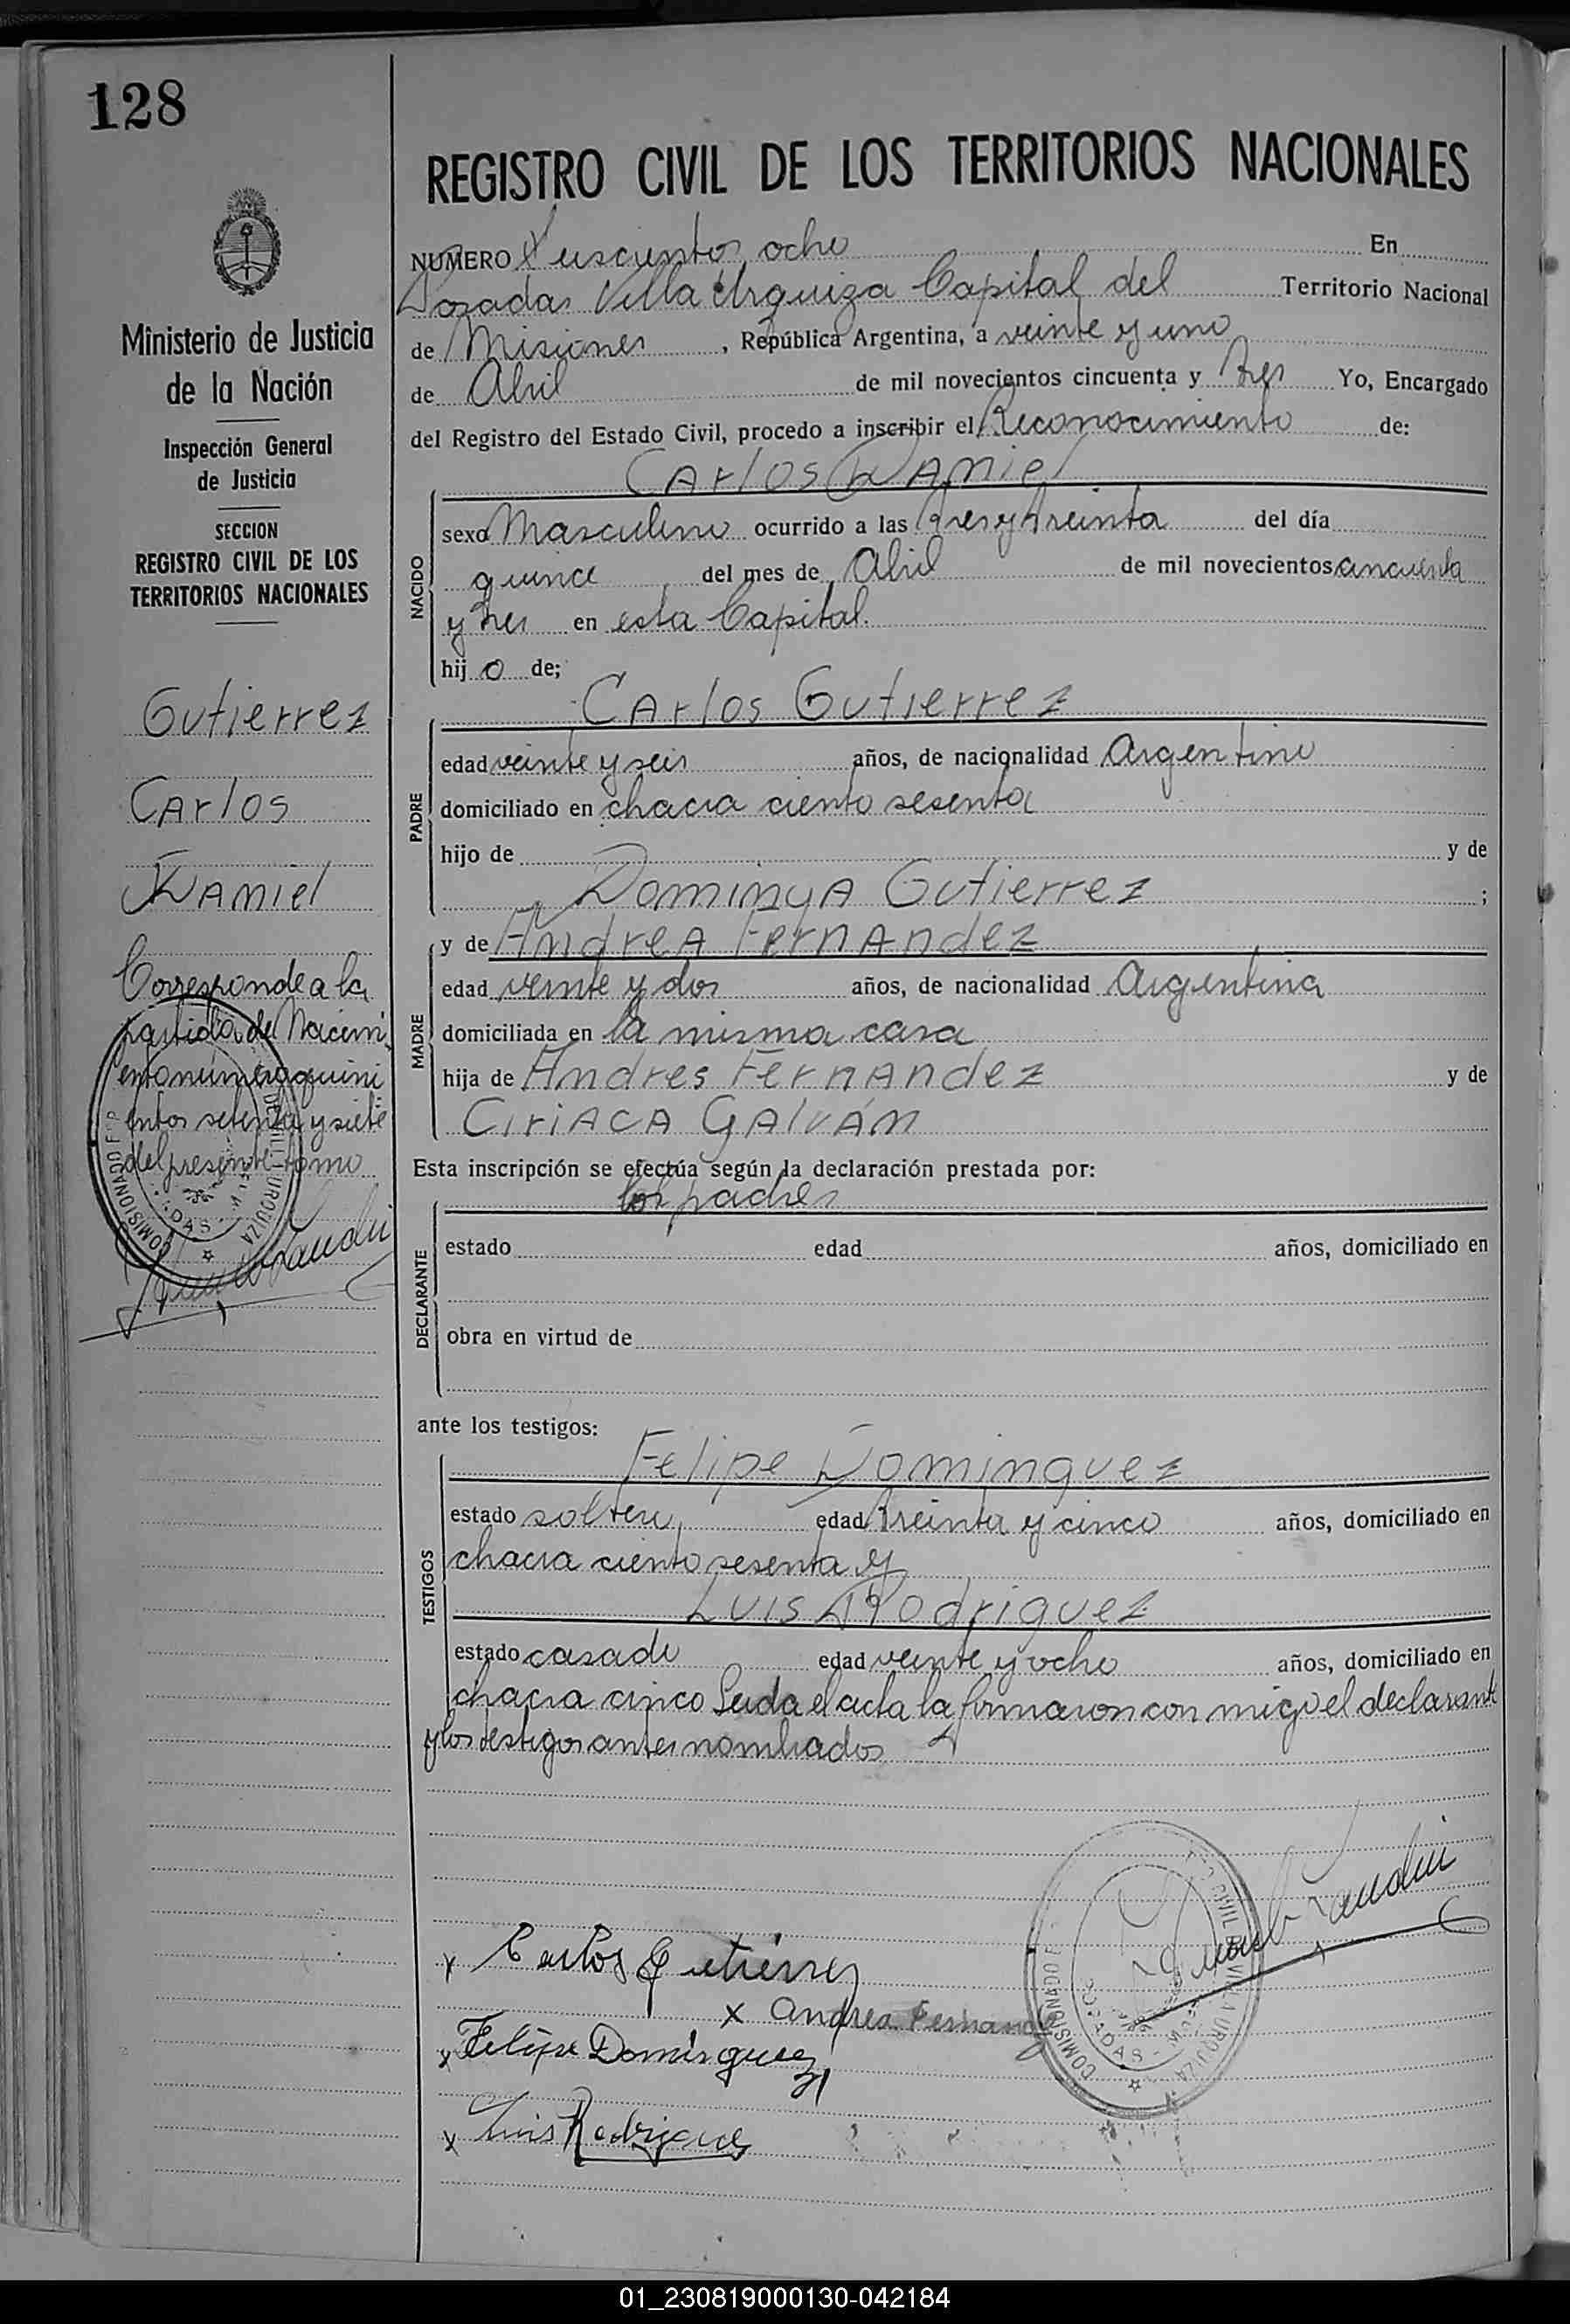 128
REGISTRO CIVIL DE LOS TERRITORIOS NACIONALES
Ministerio de Justicia
de la Nación
Inspección General
de Justicia
SECCION
REGISTRO CIVIL DE LOS
TERRITORIOS NACIONALES
Gutierrez
Carlos
Daniel
Corresponde a la
partida de Nacimi
ento número quini
entos setenta y siete
del presente tomo
NUMERO seiscientos ocho En
Posadas Villa Urquiza Capital del Territorio Nacional
de Misiones, República Argentina, a veinte y uno
de Abril de mil novecientos cincuenta y tres Yo, Encargado
del Registro del Estado Civil, procedo a inscribir el Reconocimiento de:
Carlos Daniel
NACIDO
sexo Masculino ocurrido a las tres y treinta del día
quince del mes de Abril de mil novecientos cincuenta
y tres en esta Capital.
hijo de;
Carlos Gutierrez
PADRE
edad veinte y seis años, de nacionalidad Argentino
domiciliado en chacra ciento sesenta
hijo de y de
Dominga Gutierrez ;
y de Andrea Fernandez
MADRE
edad veinte y dos años, de nacionalidad Argentina
domiciliada en la misma casa
hija de Andres Fernandez y de
Ciriaca Galván
Esta inscripción se efectúa según la declaración prestada por:
los padres
DECLARANTE
estado edad años, domiciliado en
obra en virtud de
ante los testigos:
Felipe Dominguez
TESTIGOS
estado soltero edad treinta y cinco años, domiciliado en
chacra ciento sesenta y
Luis Rodriguez
estado casado edad veinte y ocho años, domiciliado en
chacra cinco Leida el acta la firmaron conmigo el declarante
y los testigos antes nombrados
x Carlos Gutiérrez
x Andrea Fernandez
x Felipe Dominguez
x Luis Rodriguez
COMISIONADO
VILLA URQUIZA
POSADAS
01_230819000130-042184